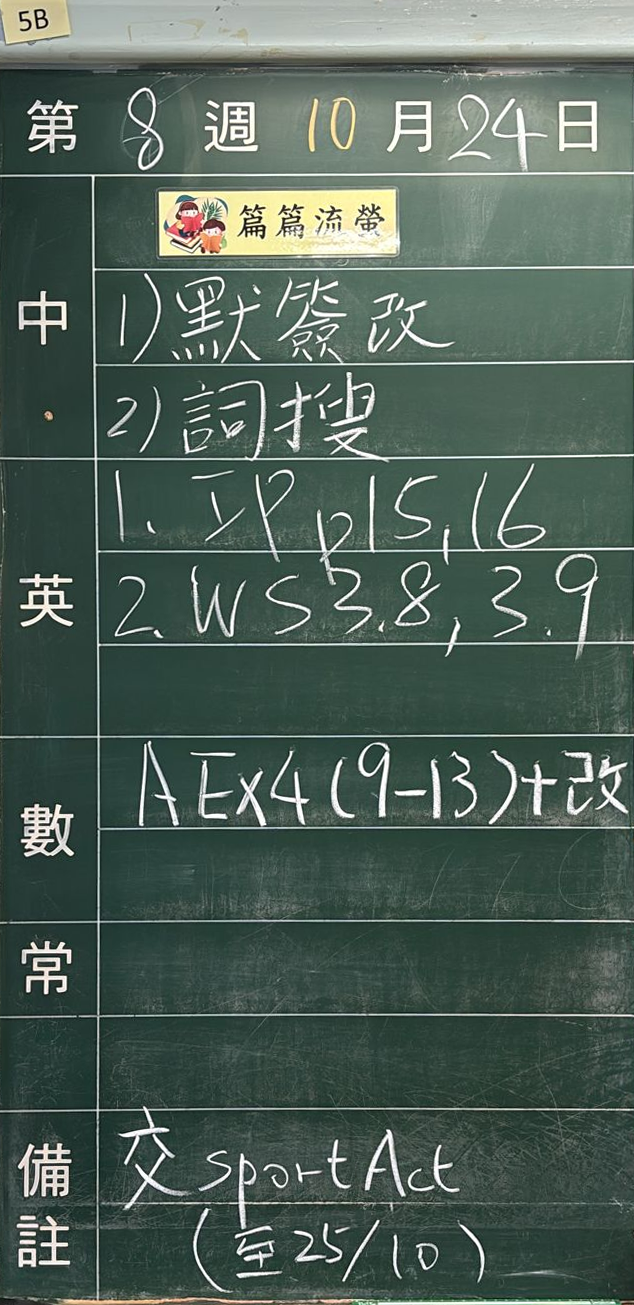 5B
第 8 週 10 月 24 日
篇篇流螢
中
1) 默簽改
2) 詞搜
英
1. IP p15,16
2. WS 3.8, 3.9
數
A Ex4 (9-13)+改
常
備註
交 sport Act
(至25/10)